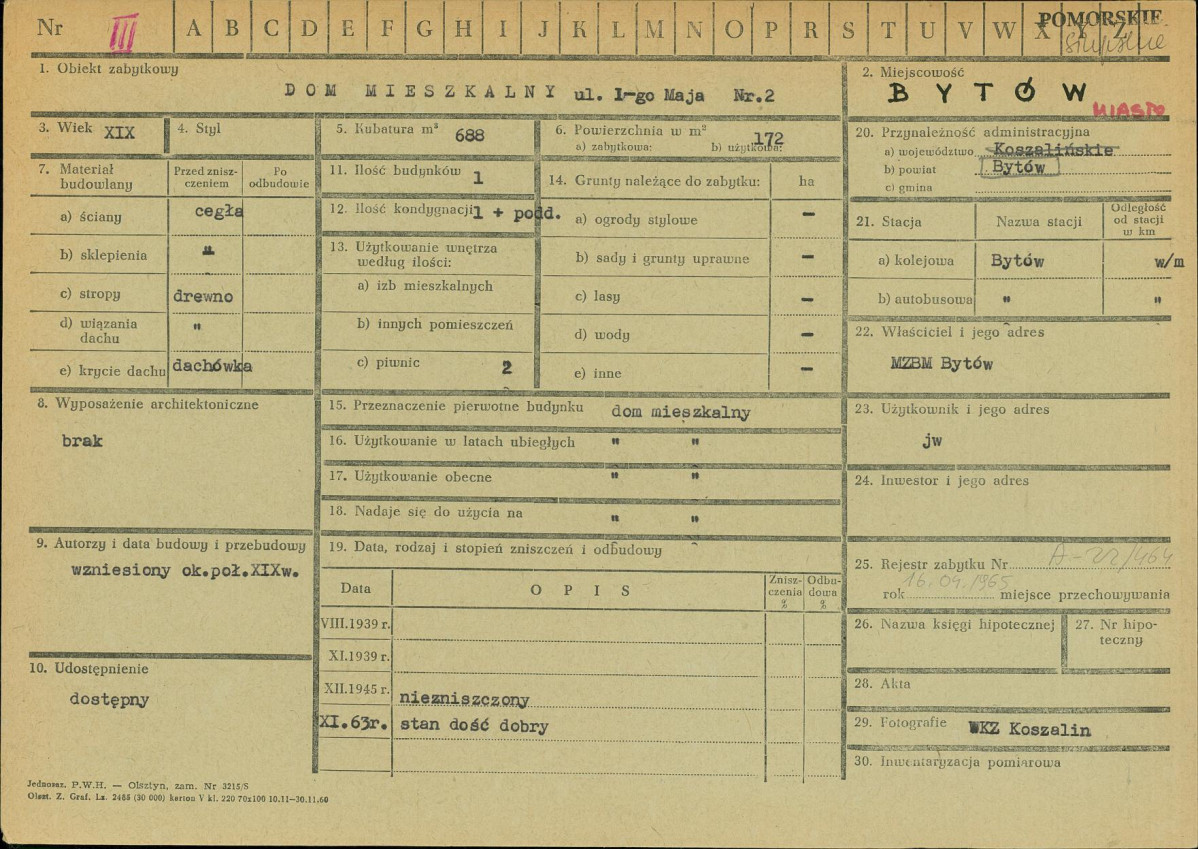 Nr III A B C D E F G H I J K L M N O P R S T U V W X Y Z
POMORSKIE
słupskie
1. Obiekt zabytkowy
DOM MIESZKALNY ul. 1-go Maja Nr.2
2. Miejscowość
BYTÓW
MIASTO
3. Wiek XIX
4. Styl
5. Kubatura m³ 688
6. Powierzchnia w m² 172
a) zabytkowa: b) użytkowa:
7. Materiał budowlany
Przed zniszczeniem
Po odbudowie
a) ściany cegła
b) sklepienia "
c) stropy drewno
d) wiązania dachu "
e) krycie dachu dachówka
8. Wyposażenie architektoniczne
brak
9. Autorzy i data budowy i przebudowy
wzniesiony ok.poł.XIXw.
10. Udostępnienie
dostępny
11. Ilość budynków 1
12. Ilość kondygnacji 1 + podd.
13. Użytkowanie wnętrza według ilości:
a) izb mieszkalnych
b) innych pomieszczeń
c) piwnic 2
14. Grunty należące do zabytku: ha
a) ogrody stylowe -
b) sady i grunty uprawne -
c) lasy -
d) wody -
e) inne -
15. Przeznaczenie pierwotne budynku dom mieszkalny
16. Użytkowanie w latach ubiegłych " "
17. Użytkowanie obecne " "
18. Nadaje się do użycia na " "
19. Data, rodzaj i stopień zniszczeń i odbudowy
Data OPIS Zniszczenia % Odbudowa %
VIII.1939 r.
XI.1939 r.
XII.1945 r. niezniszczony
XI.63r. stan dość dobry
20. Przynależność administracyjna
a) województwo Koszalińskie
b) powiat Bytów
c) gmina
21. Stacja Nazwa stacji Odległość od stacji w km
a) kolejowa Bytów w/m
b) autobusowa " "
22. Właściciel i jego adres
MZBM Bytów
23. Użytkownik i jego adres
jw
24. Inwestor i jego adres
25. Rejestr zabytku Nr A-22/464
rok 16.04.1965 miejsce przechowywania
26. Nazwa księgi hipotecznej
27. Nr hipoteczny
28. Akta
29. Fotografie WKZ Koszalin
30. Inwentaryzacja pomiarowa
Jednoraz. P.W.H. — Olsztyn, zam. Nr 3215/S
Olszt. Z. Graf. Lz. 2485 (30 000) karton V kl. 220 70x100 10.11—30.11.60